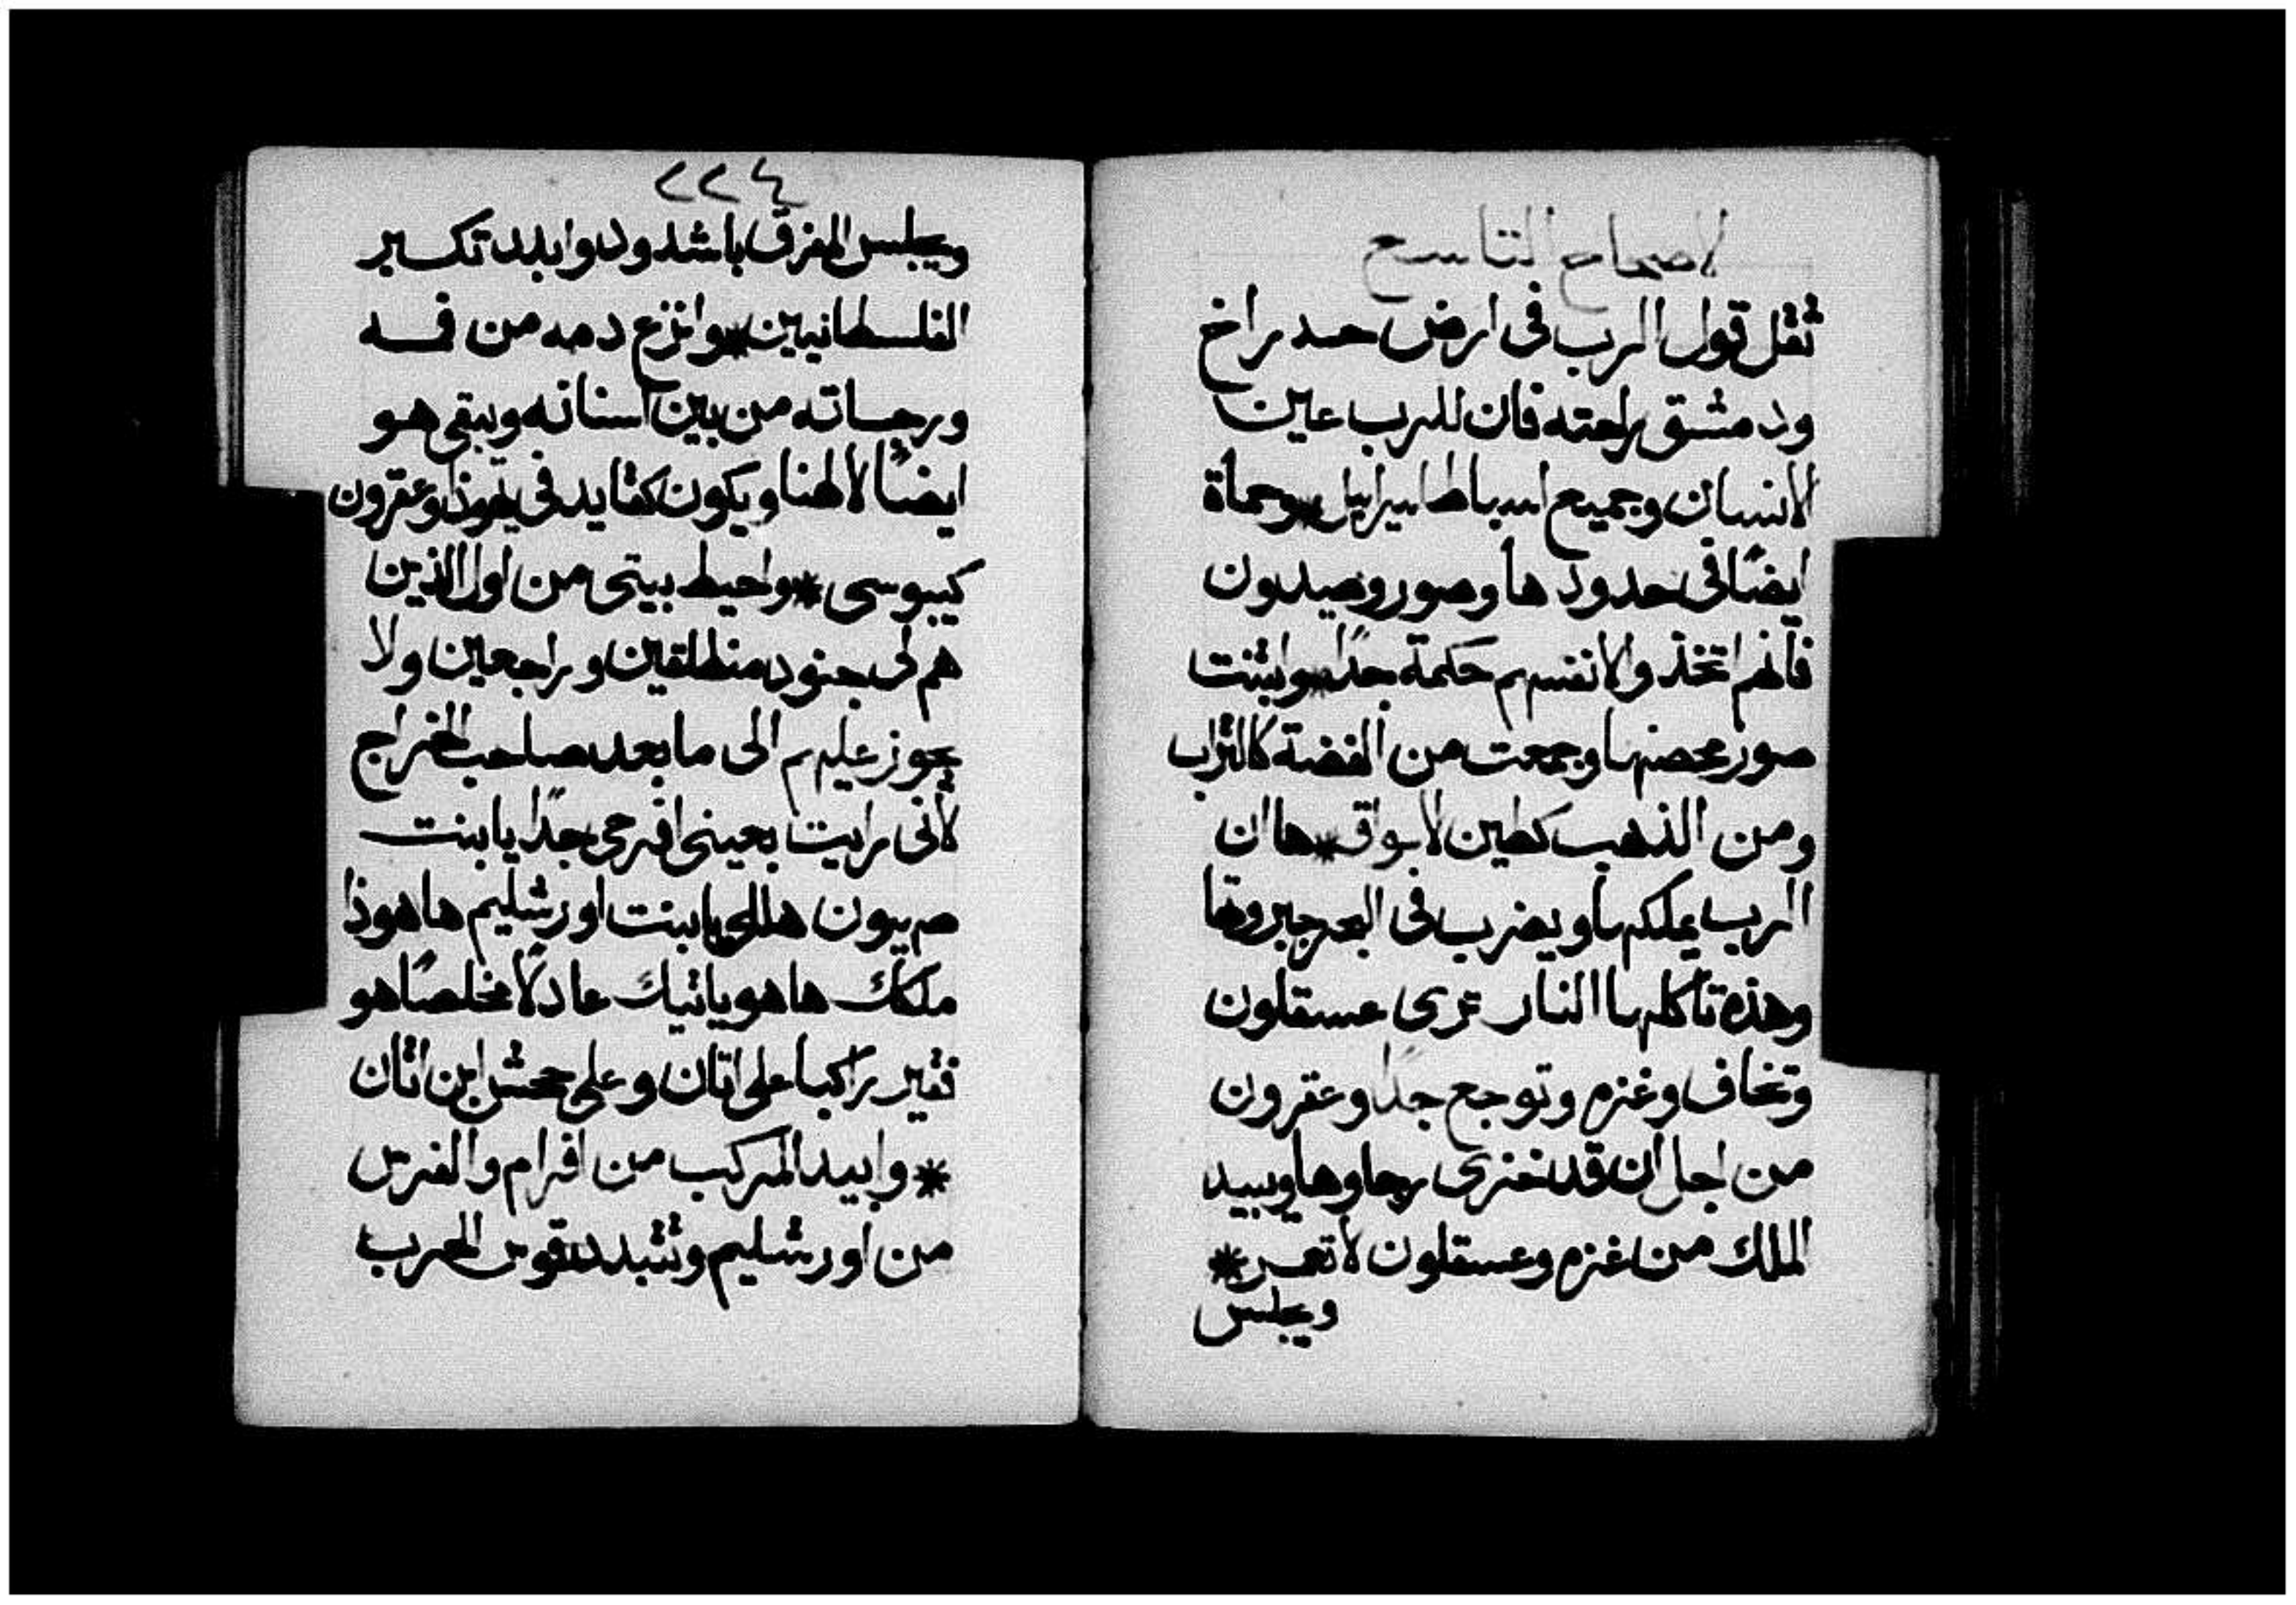 الاصحاح التاسع
ثقل قول الرب فى ارض حدراخ
ودمشق راحته فان للرب عين
الانسان وجميع اسباط اسراييل * وحماة
ايضًا فى حدودها وصور وصيدون
فانهم اتخذوا لانفسهم حكمة جدًا * وابتنت
صور محصنها وجمعت من الفضة كالتراب
ومن الذهب كطين الاسواق * ها ان
الرب يملكها ويضرب فى البحر جبروتها
وهذه تاكلها النار ترى عسقلون
وتخاف وغزه وتوجع جدًا وعقرون
من اجل ان قد خزى رجاوها ويبيد
الملك من غزه وعسقلون لا تعمر *
ويجلس
٢٢٤
ويجلس المفرق باشدود وابدد تكبر
الفلسطانيين * وانزع دمه من فمه
ورجساته من بين اسنانه ويبقى هو
ايضًا لالهنا ويكون كقايد فى يهوذا وعقرون
كيبوسى * واحيط ببيتى من اول الذين
هم لى جنود منطلقين وراجعين ولا
يجوز عليهم الى ما بعد صاحب الخراج
لانى رايت بعينى افرحى جدًا يا بنت
صهيون هللى يا بنت اورشليم ها هوذا
ملكك ها هو ياتيك عادلًا مخلصًا هو
فقير راكبا على اتان وعلى جحش ابن اتان
* وابيد المركب من افرام والفرس
من اورشليم وتتبدد قوس الحرب